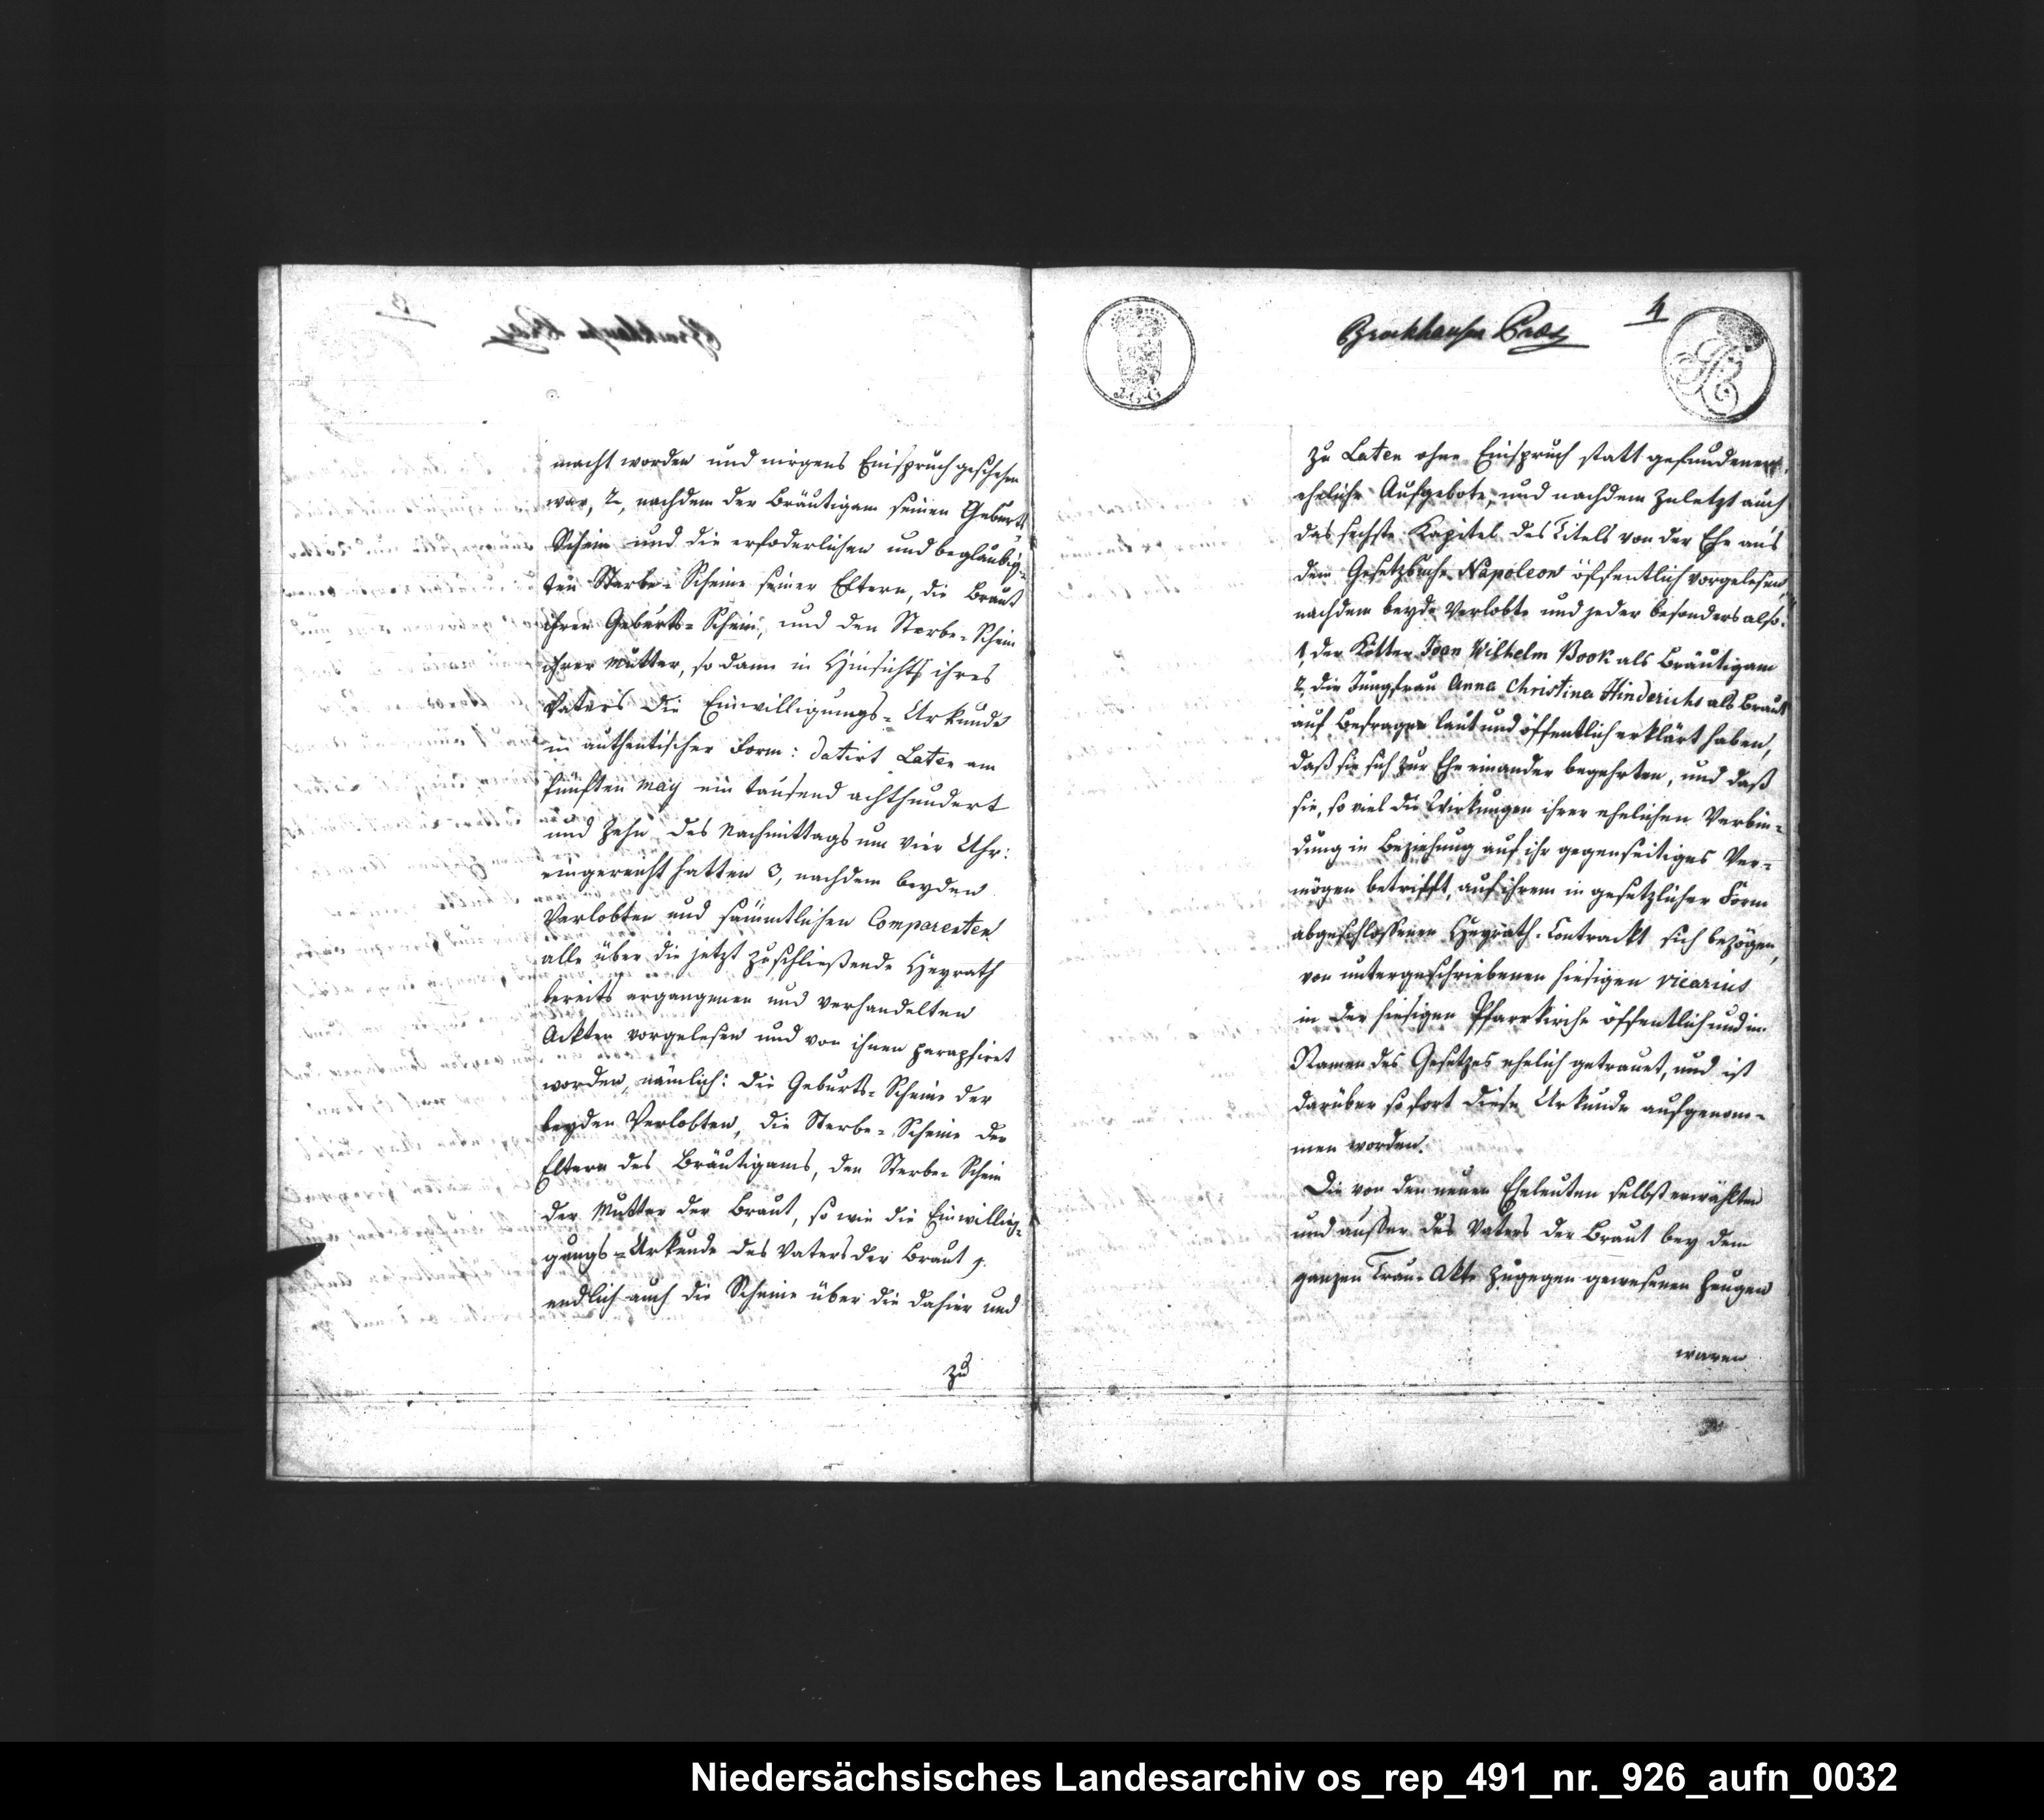 macht worden und nirgens Einspruch geschehen
war, 2, nachdem der Bräutigam seinen Geburts
Schein und die erfoderlichen und beglaubig-
ten Sterbe-Scheine seiner Eltern, die Braut
ihren Geburts-Schein, und den Sterbe-Schein
ihrer Mutter, so dann in Hinsicht ihres
Vaters die Einwilligungs-Urkunde
in authentischer Form: datirt Laten am
fünften May ein tausend achthundert
und zehn des Nachmittags um vier Uhr:
eingereicht hatten 3, nachdem beyden
Verlobten und sämmtlichen Comparenten
alle über die jetzt zuschließende Heyrath
bereits ergangenen und verhandelten
Ackten vorgelesen und von ihnen paraphiret
worden, nämlich: die Geburts-Scheine der
beyden Verlobten, die Sterbe-Scheine der
Eltern des Bräutigams, den Sterbe-Schein
der Mutter der Braut, so wie die Einwillig-
gungs-Urkunde des Vaters der Braut,
endlich auch die Scheine über die dahier und
zu
4
Brockhausen
zu Laten ohne Einspruch statt gefundenen
eheliche Aufgebote, und nachdem zuletzt auch
das sechste Kapitel des Titels von der Ehe aus
dem Gesetzbuche Napoleon öffentlich vorgelesen,
nachdem beyde Verlobte und jeder besonders also:
1, der Kötter Joan Wilhelm Book als Bräutigam
2, die Jungfrau Anna Christina Hinderichs als Braut
auf Befragen laut und öffentlich erklärt haben,
daß sie sich zur Ehe einander begehrten, und daß
sie, so viel die Wirkungen ihrer ehelichen Verbin-
dung in Beziehung auf ihr gegenseitiges Ver-
mögen betrifft, auf ihrem in gesetzlicher Form
abgeschlossenen Heyrath-Contrackt sich bezögen,
von untergeschriebenen hiesigen vicarius
in der hiesigen Pfarrkirche öffentlich und im
Namen des Gesetzes ehelich getrauet, und ist
darüber so fort diese Urkunde aufgenom-
men worden.
Die von den neuen Eheleuten selbst erwählten
und ausser des Vaters der Braut bey dem
ganzen Trau-Akte zugegen gewesenen Zeugen
waren
Niedersächsisches Landesarchiv os_rep_491_nr._926_aufn_0032